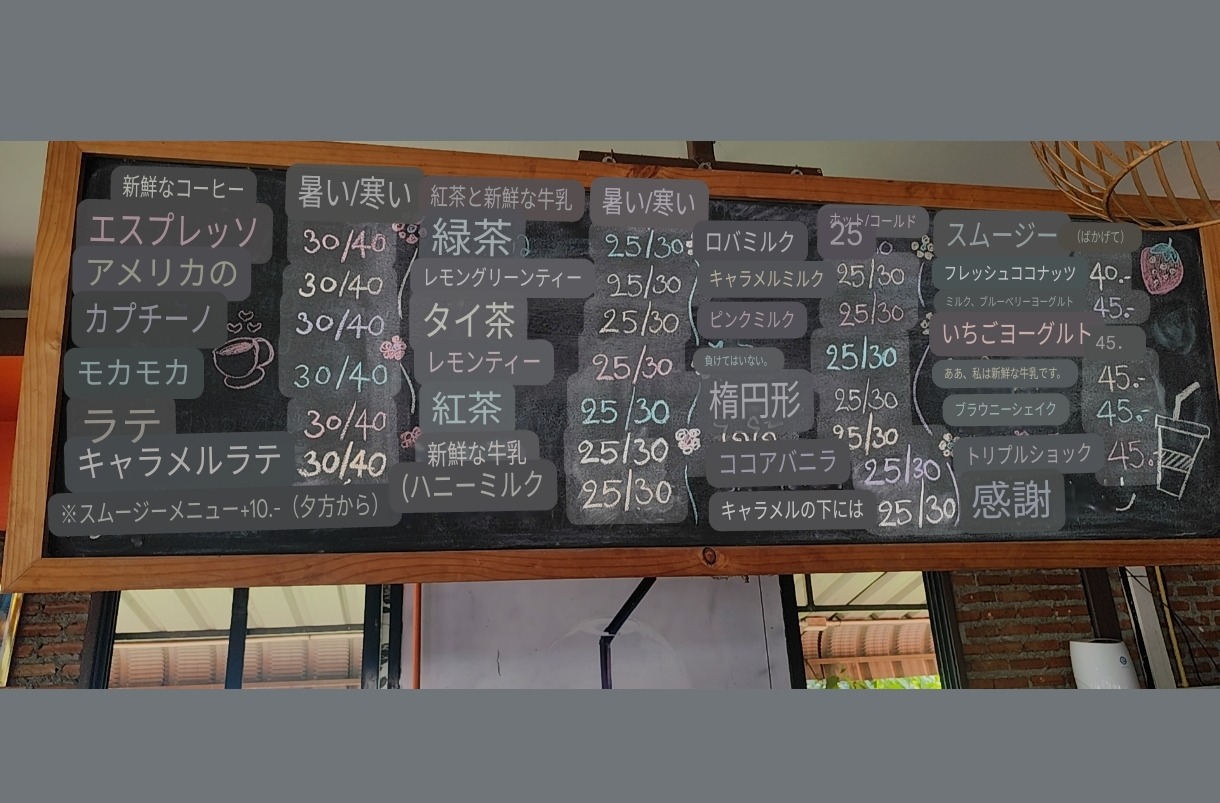 新鮮なコーヒー 暑い/寒い
エスプレッソ 30/40
アメリカの 30/40
カプチーノ 30/40
モカモカ 30/40
ラテ 30/40
キャラメルラテ 30/40
※スムージーメニュー+10.-（夕方から）
紅茶と新鮮な牛乳 暑い/寒い
緑茶 25/30
レモングリーンティー 25/30
タイ茶 25/30
レモンティー 25/30
紅茶 25/30
新鮮な牛乳 25/30
(ハニーミルク 25/30
ホット/コールド
ロバミルク 25
キャラメルミルク 25/30
ピンクミルク 25/30
負けてはいない。 25/30
楕円形 25/30
25/30
ココアバニラ 25/30
キャラメルの下には 25/30
スムージー （ばかげて）
フレッシュココナッツ 40.-
ミルク、ブルーベリーヨーグルト 45.-
いちごヨーグルト 45.
ああ、私は新鮮な牛乳です。 45.-
ブラウニーシェイク 45.-
トリプルショック 45.
感謝